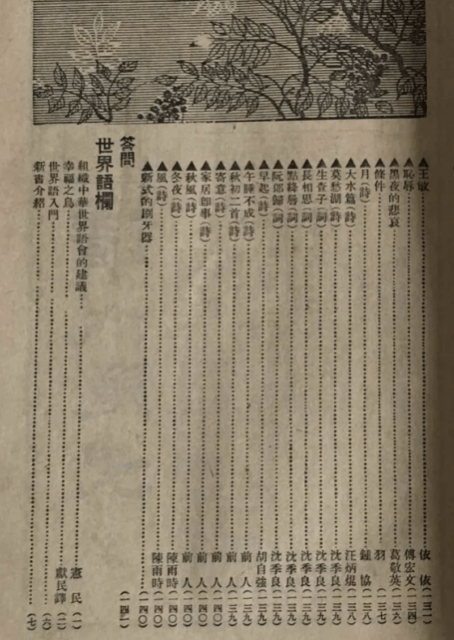 ▲王敏 依依(一三一)
▲恥辱 傅宏文(一三四)
▲黑夜的悲哀 葛敬英(一三六)
▲條件 羽(一三七)
▲月(詩) 鍾協(一三八)
▲大水篇(詩) 汪炳焜(一三八)
▲莫愁湖(詩) 沈季良(一三九)
▲生查子(詞) 沈季良(一三九)
▲長相思(詞) 沈季良(一三九)
▲點絳唇(詞) 沈季良(一三九)
▲阮郎歸(詞) 沈季良(一三九)
▲早起(詩) 胡自強(一三九)
▲午睡不成(詩) 前人(一三九)
▲秋初二首(詩) 前人(一三九)
▲寄意(詩) 前人(一四〇)
▲家居即事(詩) 前人(一四〇)
▲秋風(詩) 前人(一四〇)
▲冬夜(詩) 陳雨時(一四〇)
▲風(詩) 陳雨時(一四〇)
▲新式的刷牙器 (一四〇)
答問 (一四一)
世界語欄
組織中華世界語會的建議 憲民(一)
幸福之鳥 獻民譯(二)
世界語入門 (六)
新書介紹 (七)